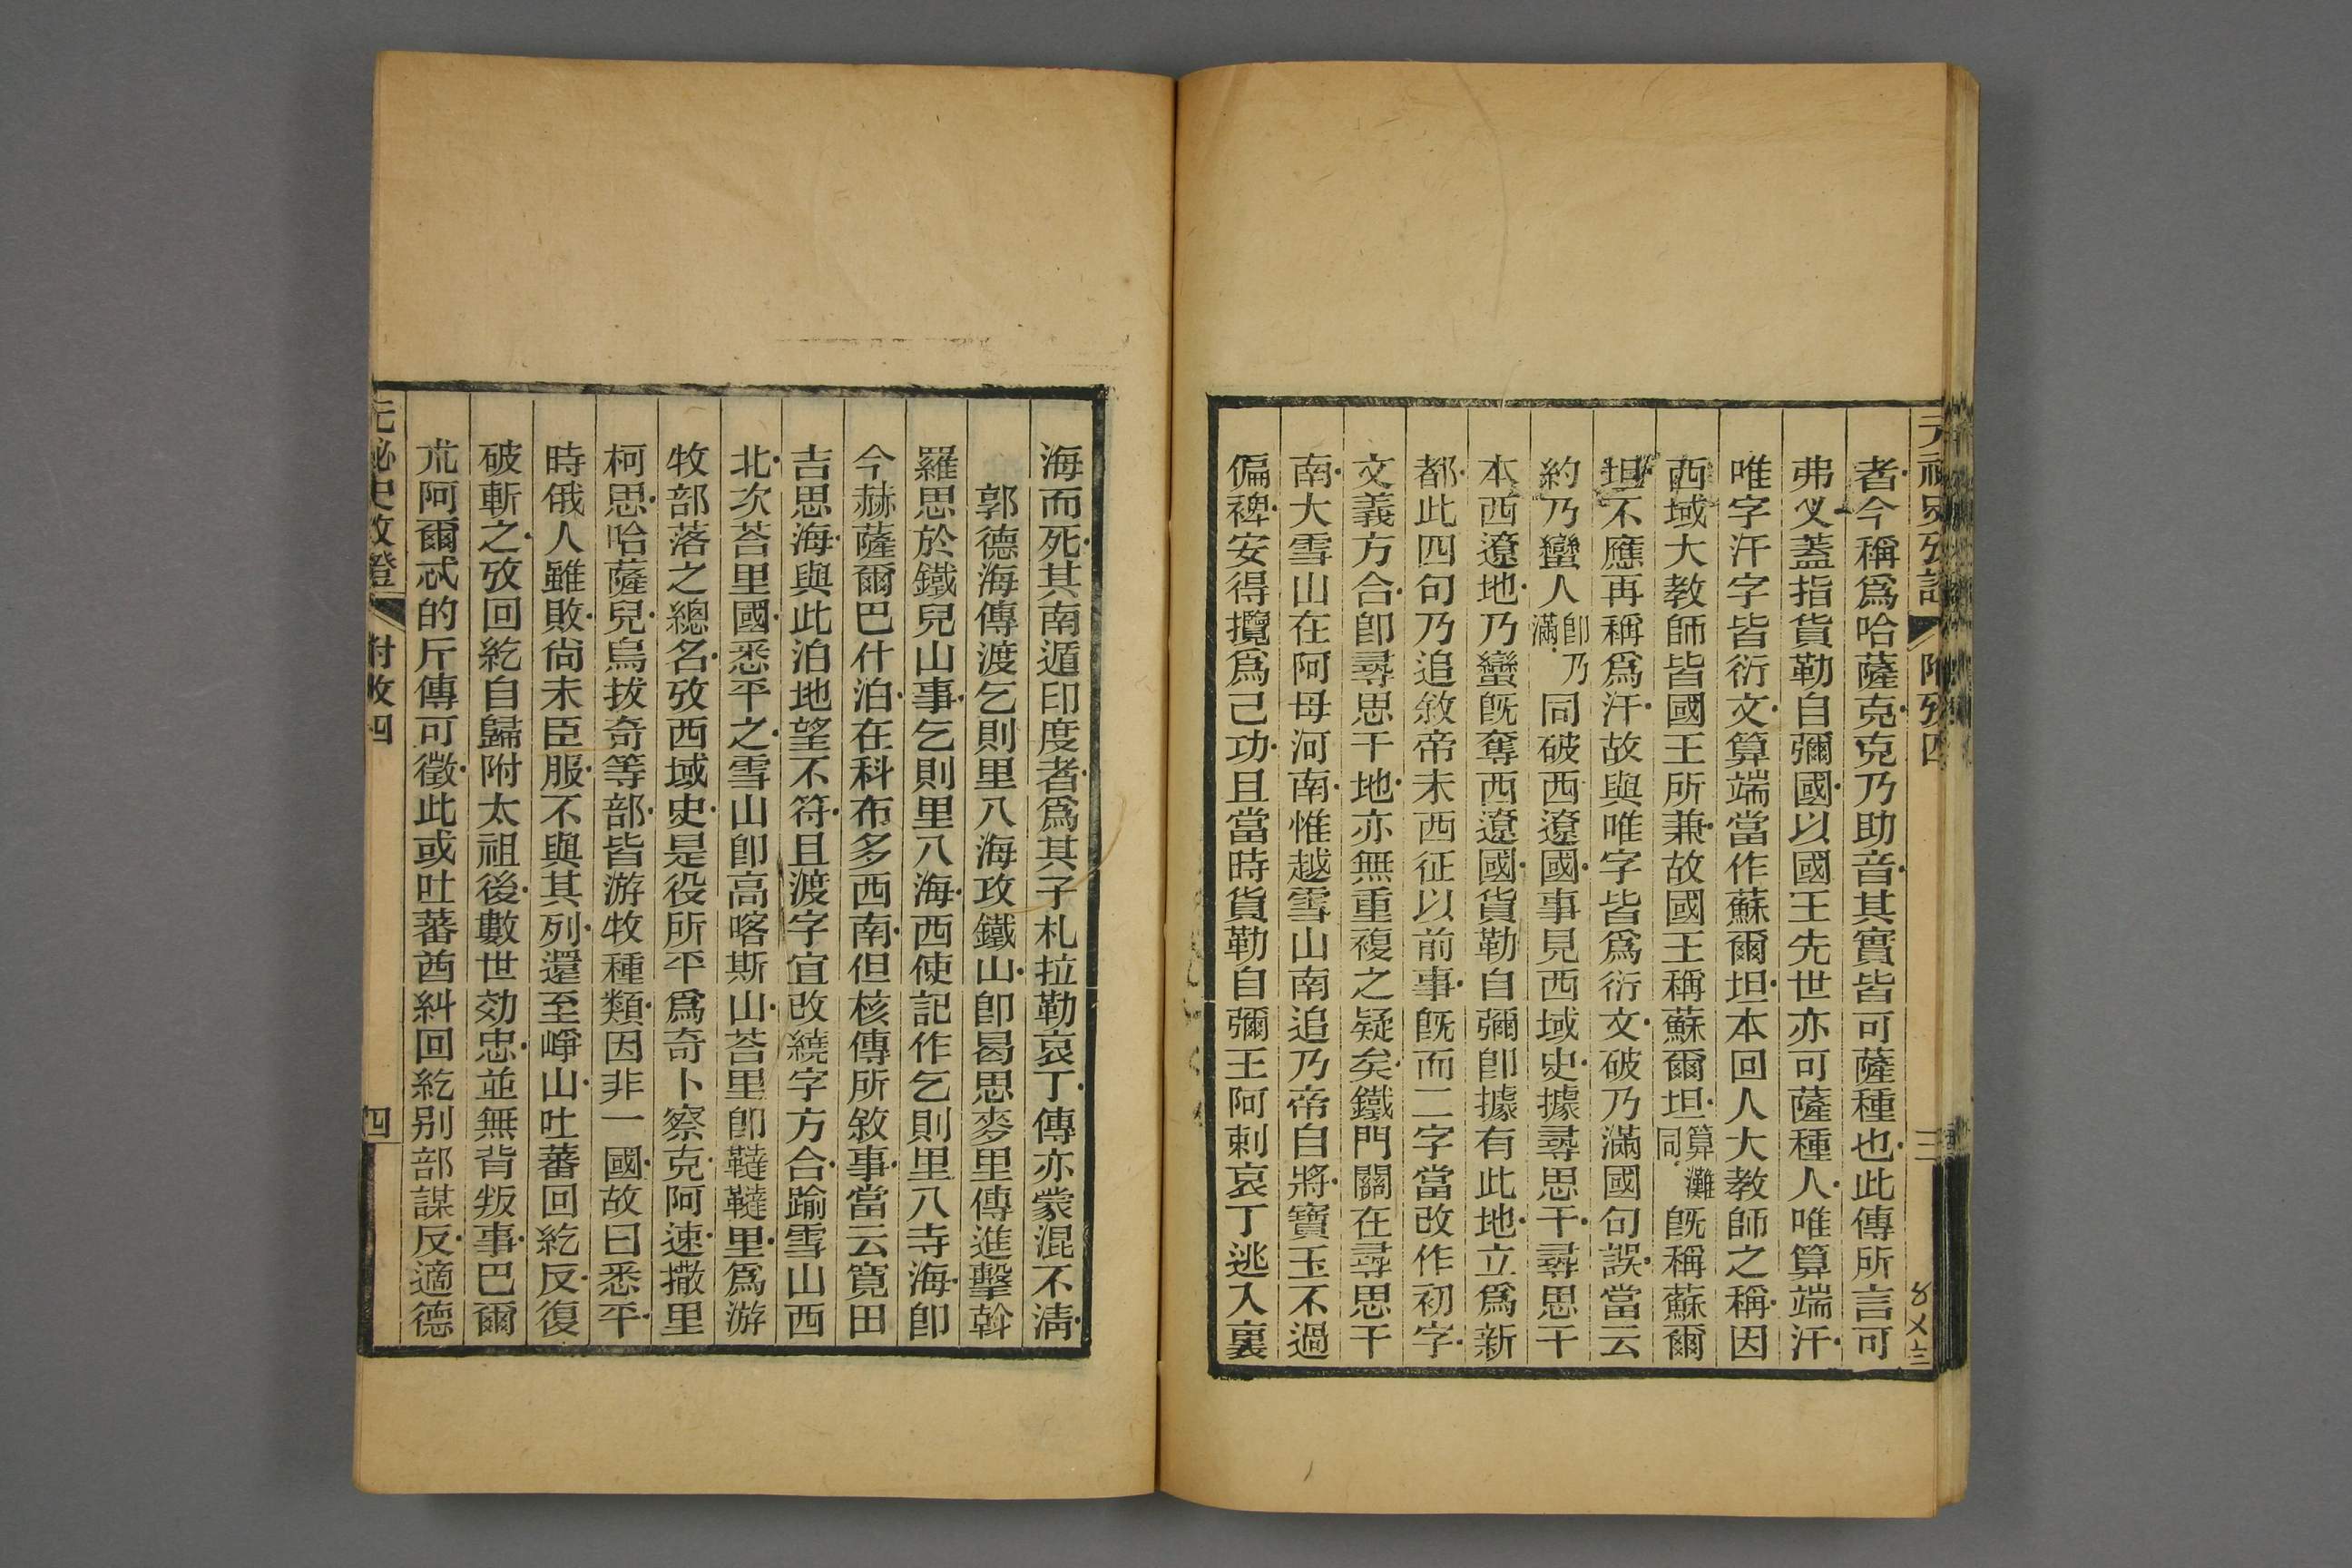 者今稱爲哈薩克克乃助音其實皆可薩種也此傳所言可
弗叉蓋指貨勒自彌國以國王先世亦可薩種人唯算端汗
唯字汗字皆衍文算端當作蘇爾坦本回人大教師之稱因
西域大教師皆國王所兼故國王稱蘇爾坦算灘同既稱蘇爾
坦不應再稱爲汗故與唯字皆爲衍文破乃滿國句誤當云
約乃蠻人卽乃滿同破西遼國事見西域史據尋思干尋思干
本西遼地乃蠻既奪西遼國貨勒自彌卽據有此地立爲新
都此四句乃追敘帝未西征以前事既而二字當改作初字
文義方合卽尋思干地亦無重複之疑矣鐵門關在尋思干
南大雪山在阿母河南惟越雪山南追乃帝自將寶玉不過
偏裨安得攬爲己功且當時貨勒自彌王阿剌哀丁逃入裏
海而死其南遁印度者爲其子札拉勒哀丁傳亦蒙混不清
郭德海傳渡乞則里八海攻鐵山卽曷思麥里傳進擊斡
羅思於鐵兒山事乞則里八海西使記作乞則里八寺海卽
今赫薩爾巴什泊在科布多西南但核傳所敘事當云寬田
吉思海與此泊地望不符且渡字宜改繞字方合踰雪山西
北次苔里國悉平之雪山卽高喀斯山苔里卽韃韃里爲游
牧部落之總名攷西域史是役所平爲奇卜察克阿速撒里
柯思哈薩兒烏拔奇等部皆游牧種類因非一國故曰悉平
時俄人雖敗尙未臣服不與其列還至崢山吐蕃回紇反復
破斬之攷回紇自歸附太祖後數世効忠並無背叛事巴爾
朮阿爾忒的斤傳可徵此或吐蕃酋糾回紇别部謀反適德
元祕史攷證 附攷四 四